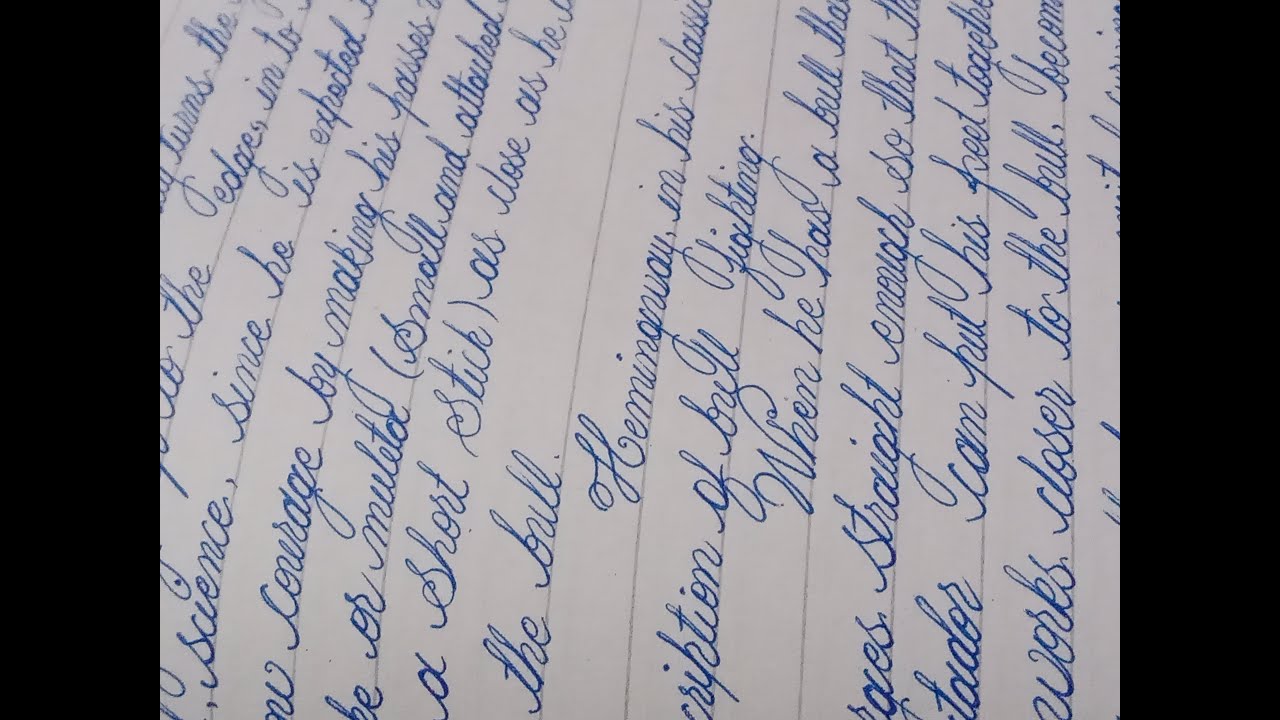 turns the
to the edge, in to
science, since he is expected
courage by making his passes
or muleta (small and attached
a short stick) as close as he
the bull.
Hemingway, in his classi
cription of bull fighting.
When he has a bull tha
races straight enough so that th
tador can put his feet togethe
works closer to the bull, becom